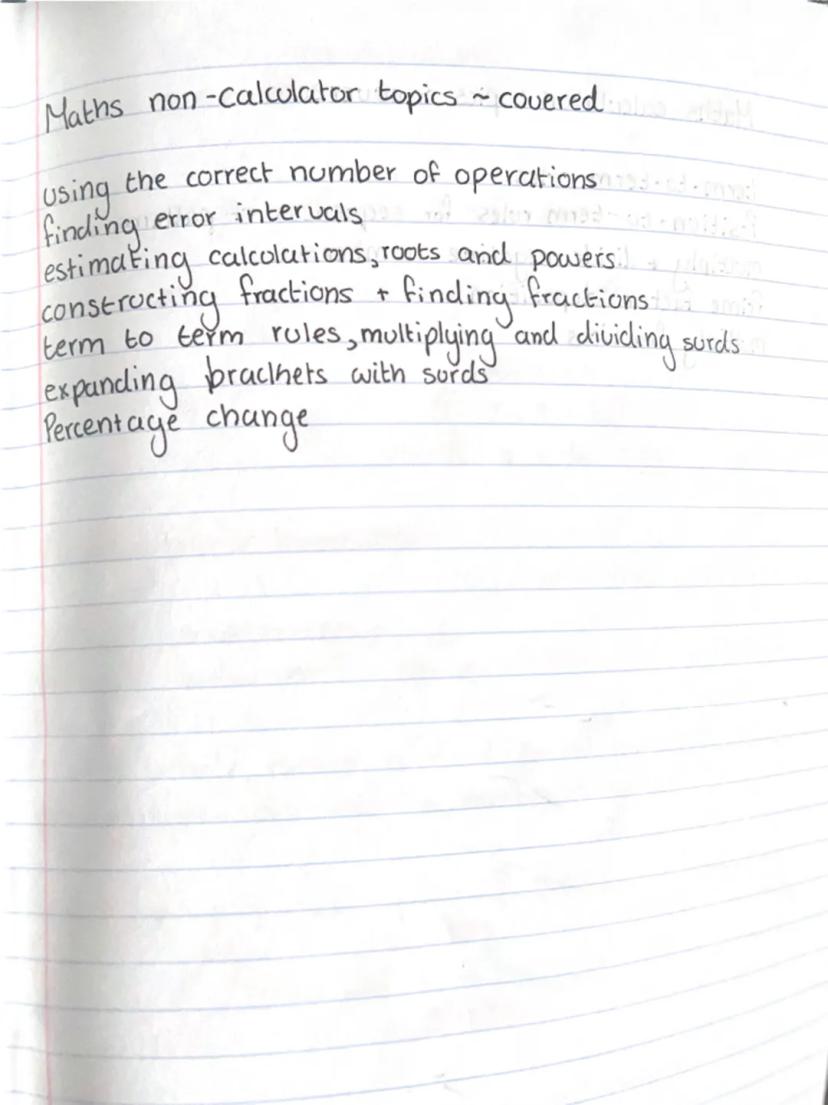 Maths non-calculator topics ~ covered
using the correct number of operations
finding error intervals
estimating calculations, roots and powers.
constructing fractions + finding fractions
term to term rules, multiplying and dividing surds
expanding brackets with surds
Percentage change